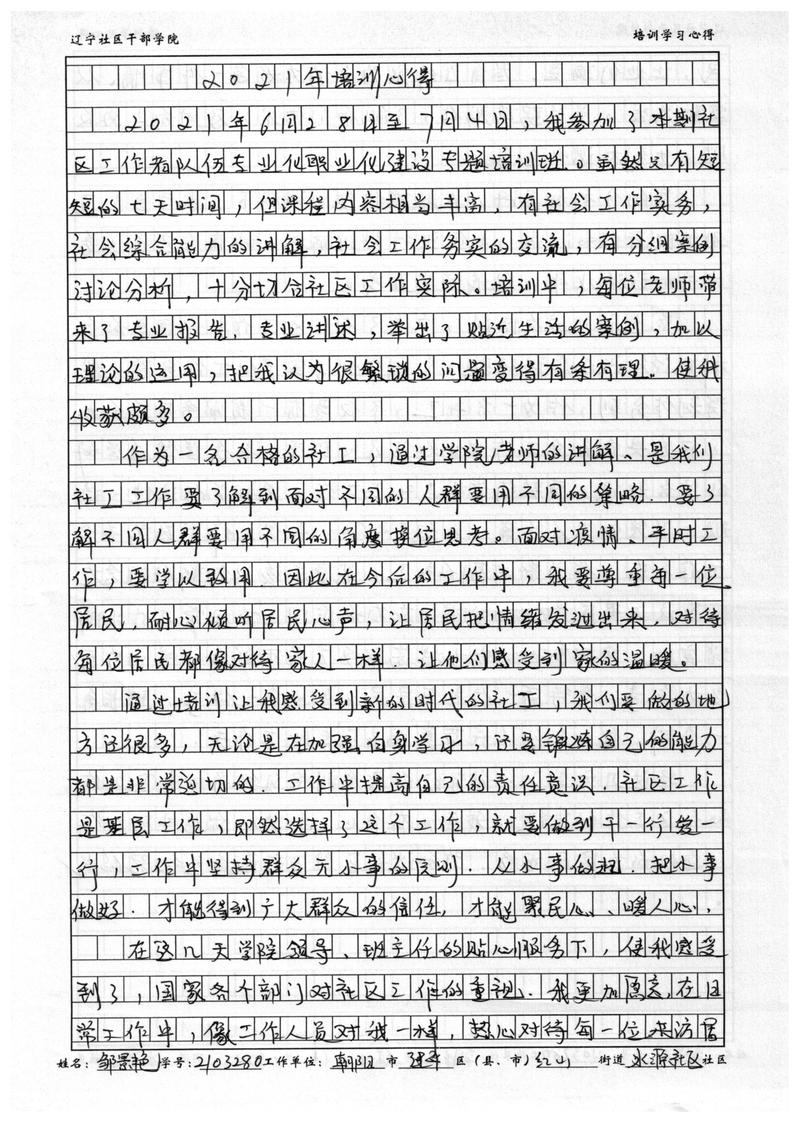 辽宁社区干部学院 培训学习心得
2021年培训心得
2021年6月28日至7月4日，我参加了本期社
区工作者队伍专业化职业化建设专题培训班。虽然只有短
短的七天时间，但课程内容相当丰富，有社会工作实务，
社会综合能力的讲解，社会工作务实的交流，有分组案例
讨论分析，十分切合社区工作实际。培训中，每位老师带
来了专业报告，专业讲述，举出了贴近生活的案例，加以
理论的运用，把我认为很繁琐的问题变得有条有理。使我
收获颇多。
作为一名合格的社工，通过学院老师的讲解、是我们
社工工作要了解到面对不同的人群要用不同的策略，要了
解不同人群要用不同的角度换位思考。面对疫情，平时工
作，要学以致用，因此在今后的工作中，我要尊重每一位
居民，耐心倾听居民心声，让居民把情绪发过出来，对待
每位居民都像对待家人一样，让他们感受到家的温暖。
通过培训让我感受到新的时代的社工，我们要做的地
方还很多，无论是在加强自身学习，还要锻炼自己的能力
都是非常迫切的．工作中提高自己的责任意识．社区工作
是基层工作，即然选择了这个工作，就要做到干一行爱一
行，工作中坚持群众无小事的原则．从小事做起．把小事
做好．才能得到广大群众的信任，才能聚民心、暖人心，
在这几天学院领导、班主任的贴心服务下，使我感受
到了，国家各个部门对社区工作的重视．我更加愿意，在日
常工作中，像工作人员对我一样，热心对待每一位来访居
姓名：邹景艳 学号：2103280 工作单位：朝阳 市 建平 区（县、市）红山 街道 水源社区 社区